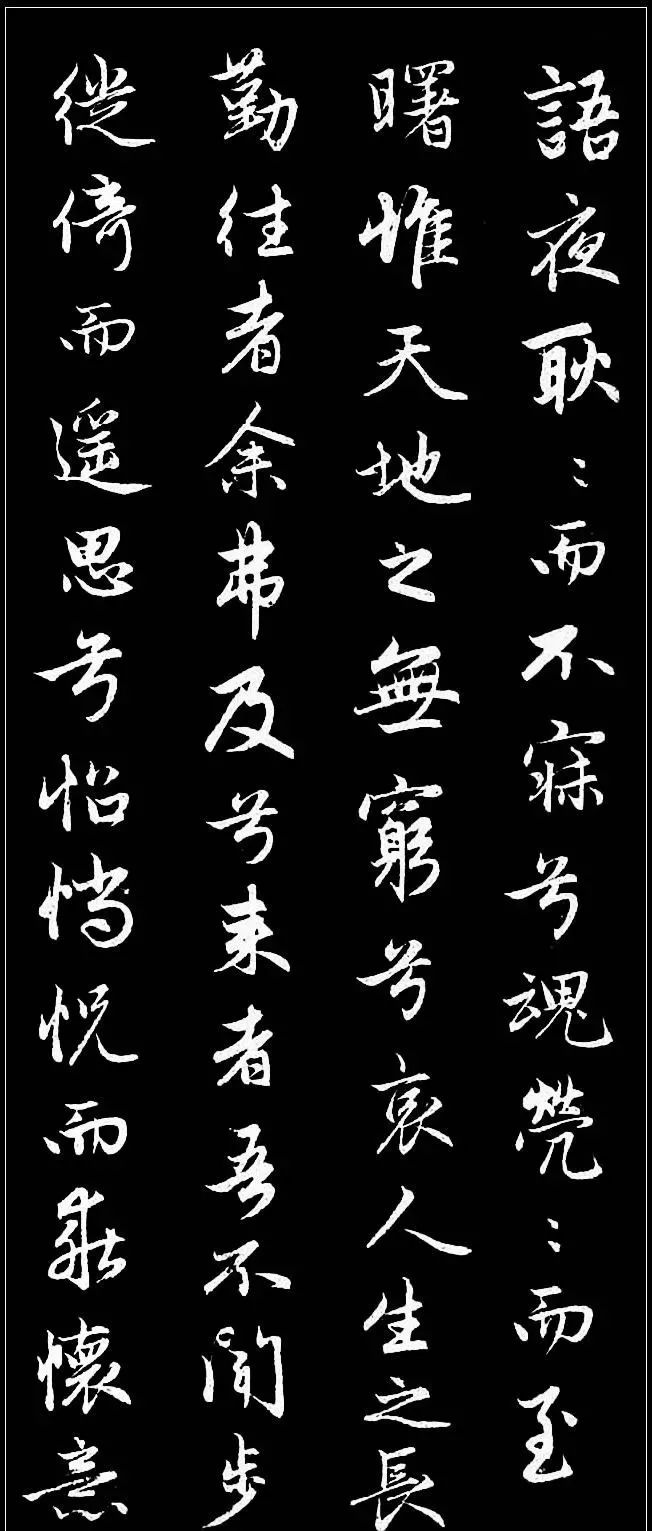 語夜耿〻而不寐兮魂煢〻而至
曙惟天地之無窮兮哀人生之長
勤往者余弗及兮来者吾不聞步
徙倚而遥思兮怊惝怳而乖懷意